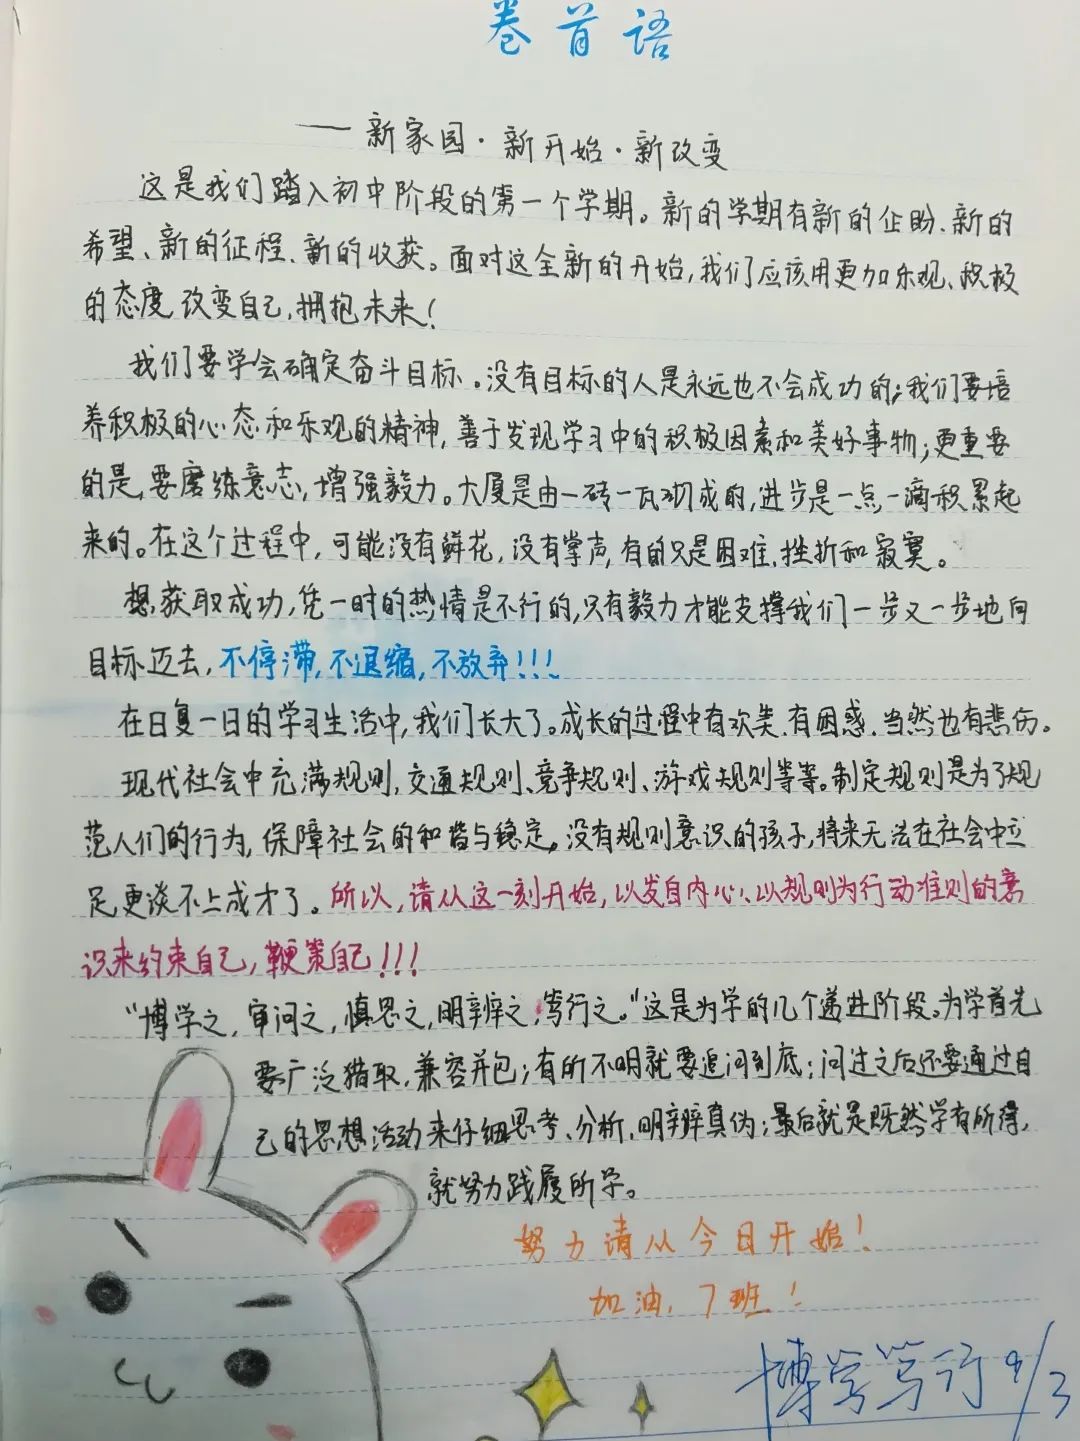 卷首语
——新家园·新开始·新改变
这是我们踏入初中阶段的第一个学期。新的学期有新的企盼、新的
希望、新的征程、新的收获。面对这全新的开始,我们应该用更加乐观、积极
的态度,改变自己,拥抱未来!
我们要学会确定奋斗目标。没有目标的人是永远也不会成功的;我们要培
养积极的心态和乐观的精神,善于发现学习中的积极因素和美好事物;更重要
的是,要磨练意志,增强毅力。大厦是由一砖一瓦砌成的,进步是一点一滴积累起
来的。在这个过程中,可能没有鲜花,没有掌声,有的只是困难、挫折和寂寞。
想获取成功,凭一时的热情是不行的,只有毅力才能支撑我们一步又一步地向
目标迈去,不停滞,不退缩,不放弃!!!
在日复一日的学习生活中,我们长大了。成长的过程中有欢笑、有困惑、当然也有悲伤。
现代社会中充满规则,交通规则、竞争规则、游戏规则等等。制定规则是为了规
范人们的行为,保障社会的和谐与稳定。没有规则意识的孩子,将来无法在社会中立
足更谈不上成才了。所以,请从这一刻开始,以发自内心、以规则为行动准则的意
识来约束自己,鞭策自己!!!
“博学之,审问之,慎思之,明辨之,笃行之。”这是为学的几个递进阶段。为学首先
要广泛猎取,兼容并包;有所不明就要追问到底;问过之后还要通过自
己的思想活动来仔细思考、分析,明辨真伪;最后就是既然学有所得,
就努力践履所学。
努力请从今日开始!
加油,7班!
博学笃行 9/3